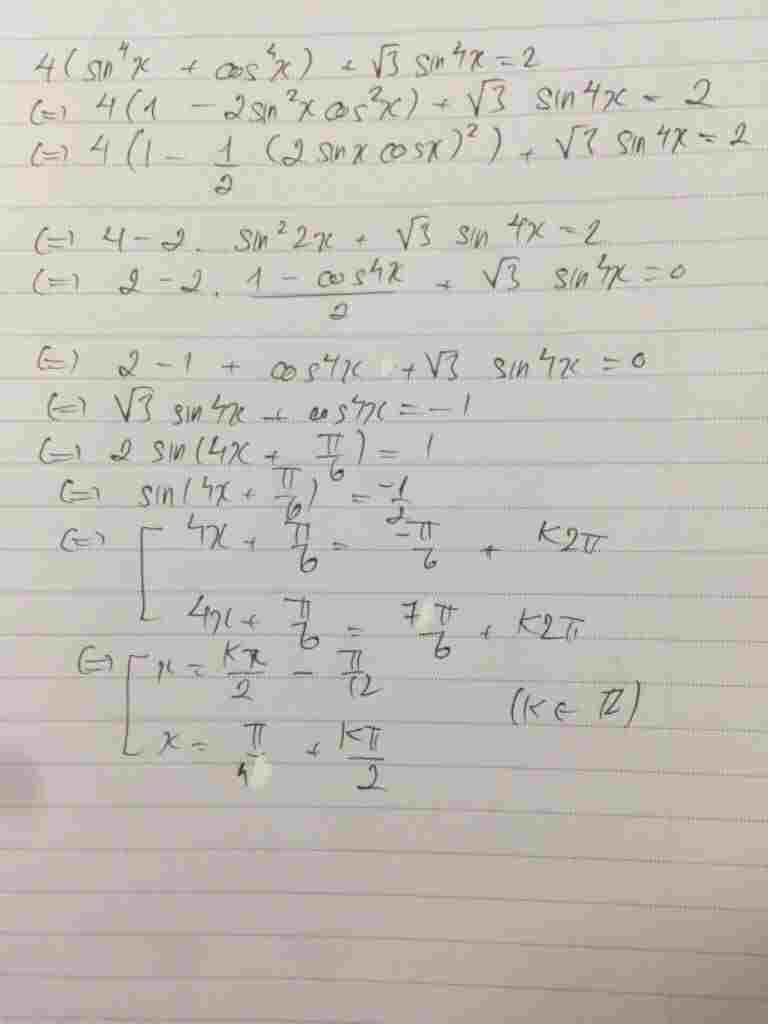 4(sin⁴x + cos⁴x) + √3 sin4x = 2
(=) 4(1 - 2sin²x cos²x) + √3 sin4x = 2
(=) 4(1 - 1/2 (2sinx cosx)²) + √3 sin4x = 2
(=) 4 - 2. sin²2x + √3 sin 4x = 2
(=) 2 - 2. (1 - cos4x)/2 + √3 sin4x = 0
(=) 2 - 1 + cos4x + √3 sin4x = 0
(=) √3 sin4x + cos4x = -1
(=) 2 sin(4x + π/6) = 1
(=) sin(4x + π/6) = -1/2
(=) [ 4x + π/6 = -π/6 + K2π
4x + π/6 = 7π/6 + K2π
(=) [ x = Kx/2 - π/12
(K ∈ Z)
x = π/4 + Kπ/2